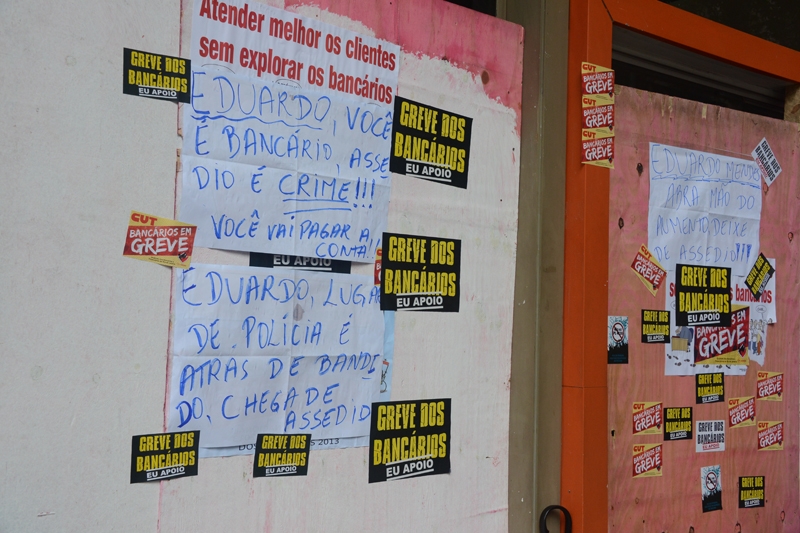 Atender melhor os clientes
sem explorar os bancários
EDUARDO, VOCÊ
É BANCÁRIO, ASSE
DIO É CRIME!!!
VOCÊ VAI PAGAR A
CONTA!!
EU APOIO
EDUARDO, LUGA
DE POLÍCIA É
ATRÁS DE BANDI
DO, CHEGA DE
ASSEDIO
2013
GREVE DOS
BANCÁRIOS
EU APOIO
GREVE DOS
BANCÁRIOS
EU APOIO
GREVE DOS
BANCÁRIOS
EU APOIO
GREVE DOS
BANCÁRIOS
EU APOIO
GREVE DOS
BANCÁRIOS
EU APOIO
GREVE DOS
BANCÁRIOS
EU APOIO
CUT
BANCÁRIOS EM
GREVE
CUT
BANCÁRIOS EM
GREVE
CUT
BANCÁRIOS EM
GREVE
CUT
BANCÁRIOS EM
GREVE
EDUARDO MENDE
ABRA MÃO DO
AUMENTO, DEIXE
DE ASSEDIO!!!
GREVE DOS
BANCÁRIOS
BANCÁRIOS EM
GREVE
GREVE DOS
BANCÁRIOS
EU APOIO
os bancários
BANCÁRIOS EM
GREVE
GREVE DOS
BANCÁRIOS
GREVE DOS
BANCÁRIOS
CUT
GREVE
CUT
GREVE
CUT
GREVE
GREVE DOS
BANCÁRIOS
GREVE DOS
BANCÁRIOS
CUT
GREVE
CUT
GREVE
GREVE DOS
BANCÁRIOS